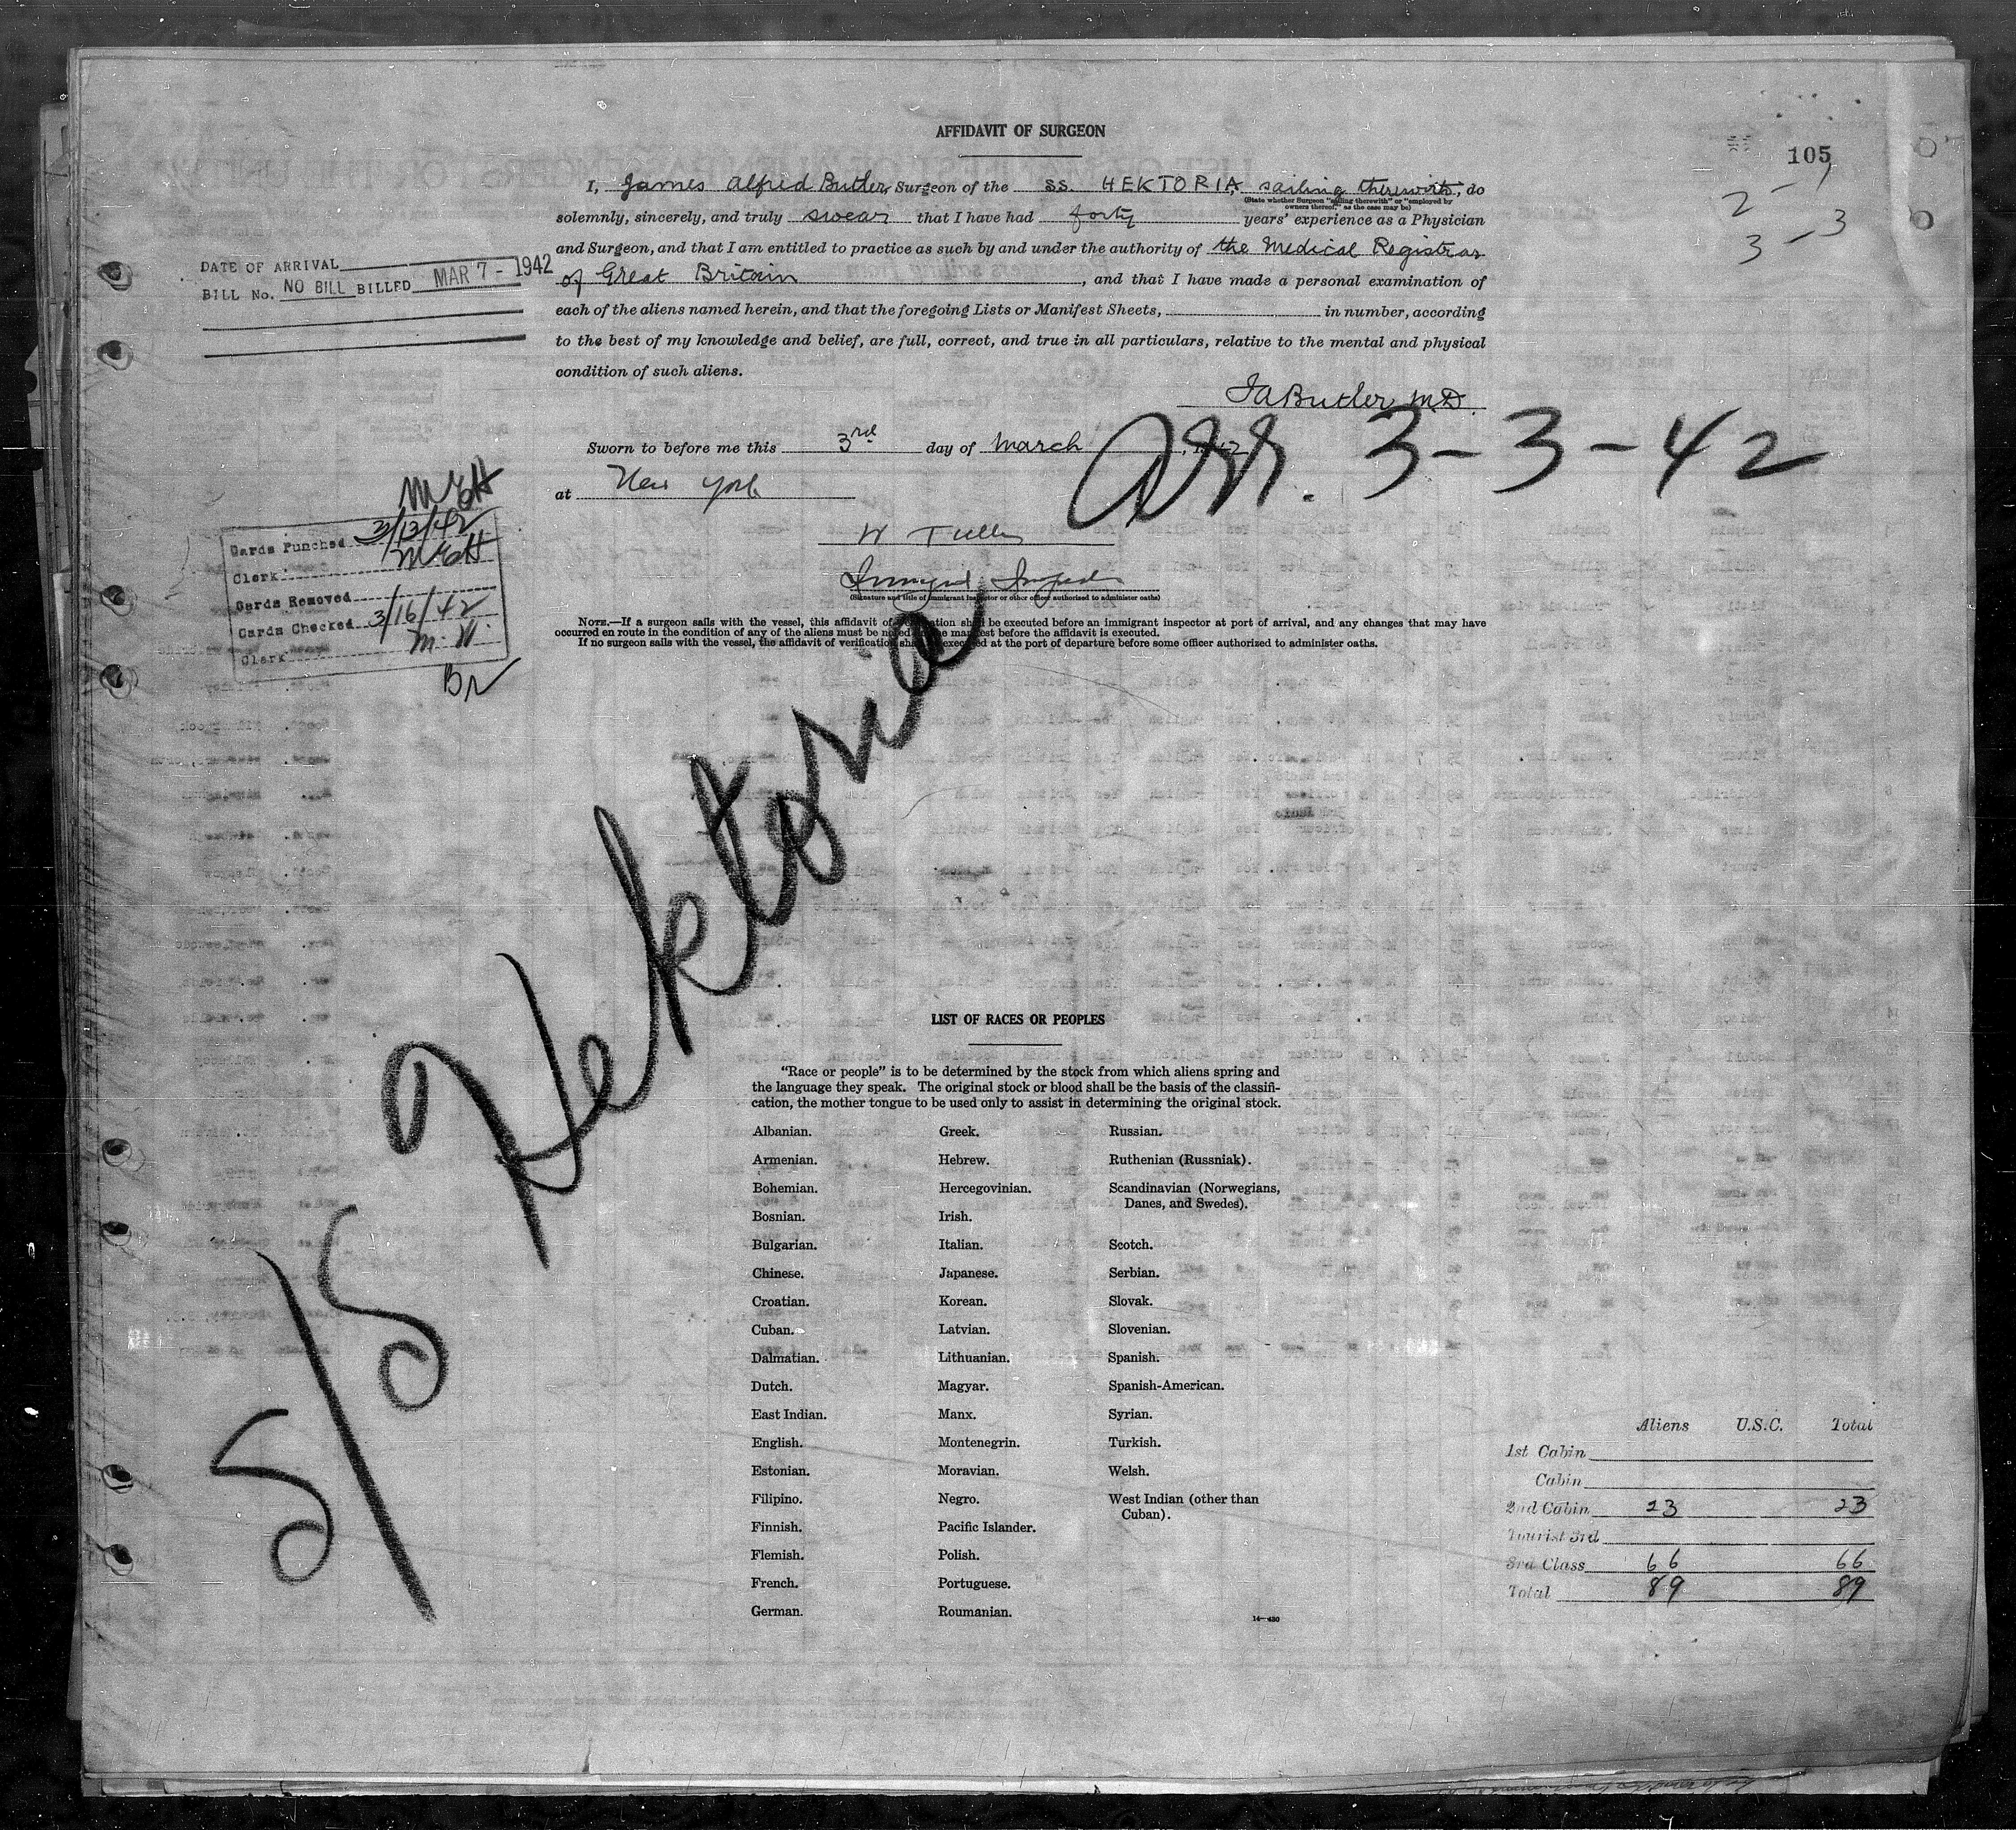 AFFIDAVIT OF SURGEON
105
2 - 1
3 - 3
I, James Alfred Butler, Surgeon of the SS. HEKTORIA, sailing therewith, do
(State whether Surgeon "sailing therewith" or "employed by
owners thereof," as the case may be)
solemnly, sincerely, and truly swear that I have had forty years' experience as a Physician
and Surgeon, and that I am entitled to practice as such by and under the authority of the Medical Registrar
of Great Britain, and that I have made a personal examination of
each of the aliens named herein, and that the foregoing Lists or Manifest Sheets, in number, according
to the best of my knowledge and belief, are full, correct, and true in all particulars, relative to the mental and physical
condition of such aliens.
DATE OF ARRIVAL
BILL No. NO BILL BILLED MAR 7 - 1942
JAButler M.D.
Sworn to before me this 3rd day of March, 1942
at New York
Arr. 3-3-42
W Tully
Immigrant Inspector
(Signature and title of immigrant inspector or other officer authorized to administer oaths)
McH
Cards Punched 3/13/42
Clerk McH
Cards Removed
Cards Checked 3/16/42
Clerk M. H.
Br
NOTE.—If a surgeon sails with the vessel, this affidavit of verification shall be executed before an immigrant inspector at port of arrival, and any changes that may have
occurred en route in the condition of any of the aliens must be noted on the manifest before the affidavit is executed.
If no surgeon sails with the vessel, the affidavit of verification shall be executed at the port of departure before some officer authorized to administer oaths.
S/S Hektoria
LIST OF RACES OR PEOPLES
"Race or people" is to be determined by the stock from which aliens spring and
the language they speak. The original stock or blood shall be the basis of the classifi-
cation, the mother tongue to be used only to assist in determining the original stock.
Albanian.
Armenian.
Bohemian.
Bosnian.
Bulgarian.
Chinese.
Croatian.
Cuban.
Dalmatian.
Dutch.
East Indian.
English.
Estonian.
Filipino.
Finnish.
Flemish.
French.
German.
Greek.
Hebrew.
Hercegovinian.
Irish.
Italian.
Japanese.
Korean.
Latvian.
Lithuanian.
Magyar.
Manx.
Montenegrin.
Moravian.
Negro.
Pacific Islander.
Polish.
Portuguese.
Roumanian.
Russian.
Ruthenian (Russniak).
Scandinavian (Norwegians,
Danes, and Swedes).
Scotch.
Serbian.
Slovak.
Slovenian.
Spanish.
Spanish-American.
Syrian.
Turkish.
Welsh.
West Indian (other than
Cuban).
14—430
Aliens U.S.C. Total
1st Cabin
Cabin
2nd Cabin 23 23
Tourist 3rd
3rd Class 66 66
Total 89 89